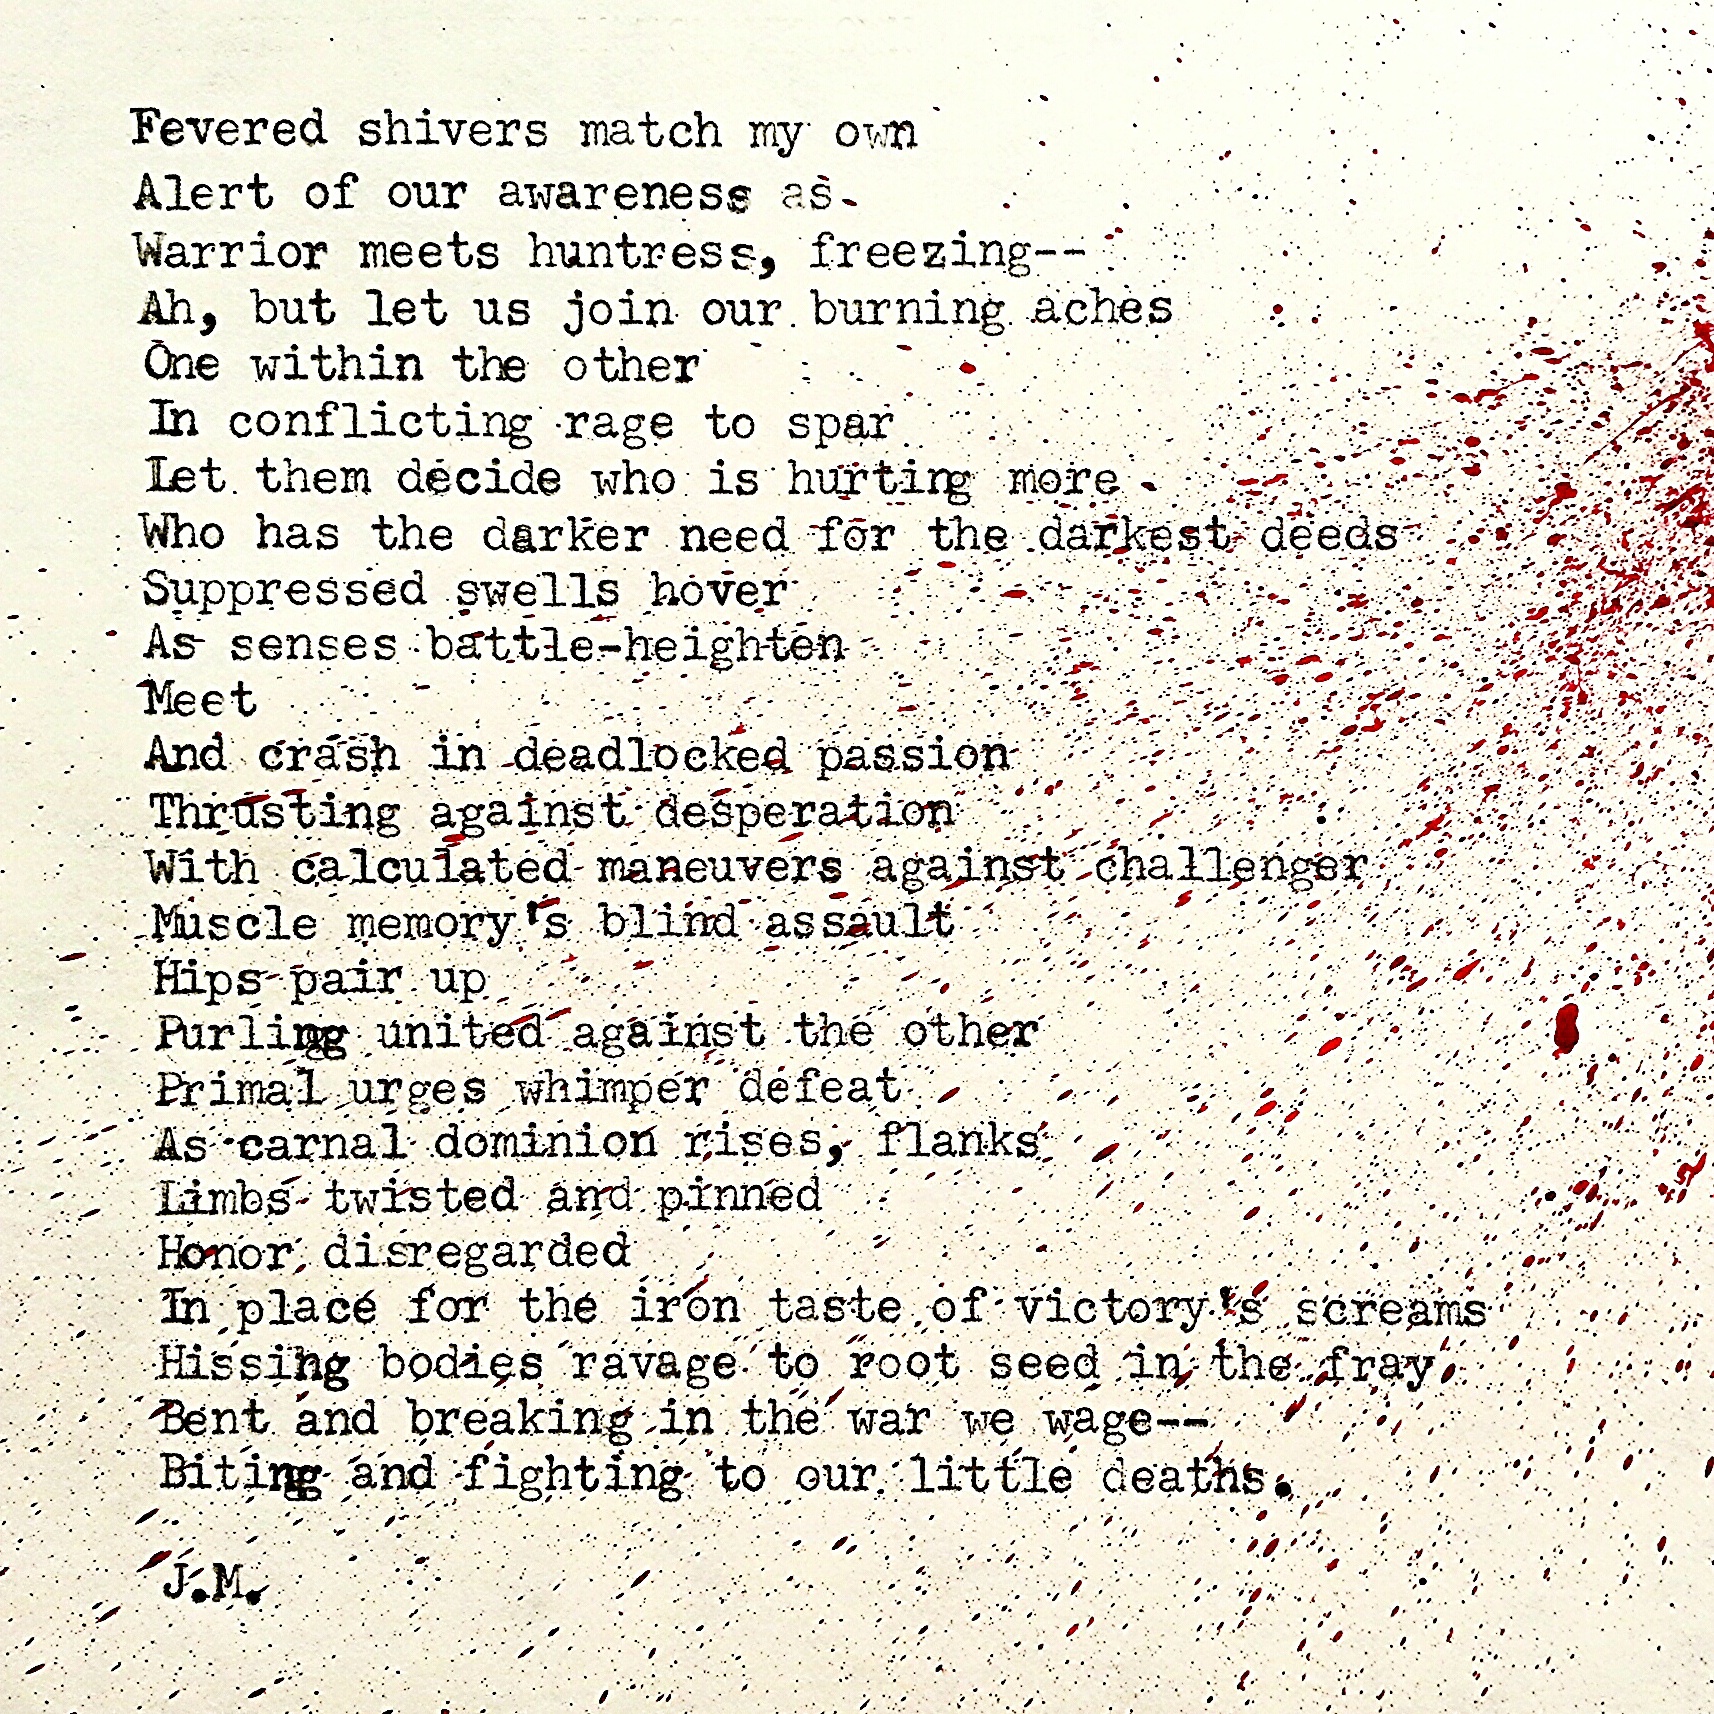 Fevered shivers match my own
Alert of our awareness as
Warrior meets huntress, freezing--
Ah, but let us join our burning aches
One within the other
In conflicting rage to spar
Let them decide who is hurting more
Who has the darker need for the darkest deeds
Suppressed swells hover
As senses battle-heighten
Meet
And crash in deadlocked passion
Thrusting against desperation
With calculated maneuvers against challenger
Muscle memory's blind assault
Hips pair up
Purling united against the other
Primal urges whimper defeat
As carnal dominion rises, flanks
Limbs twisted and pinned
Honor disregarded
In place for the iron taste of victory's screams
Hissing bodies ravage to root seed in the fray
Bent and breaking in the war we wage--
Biting and fighting to our little deaths.
J.M.